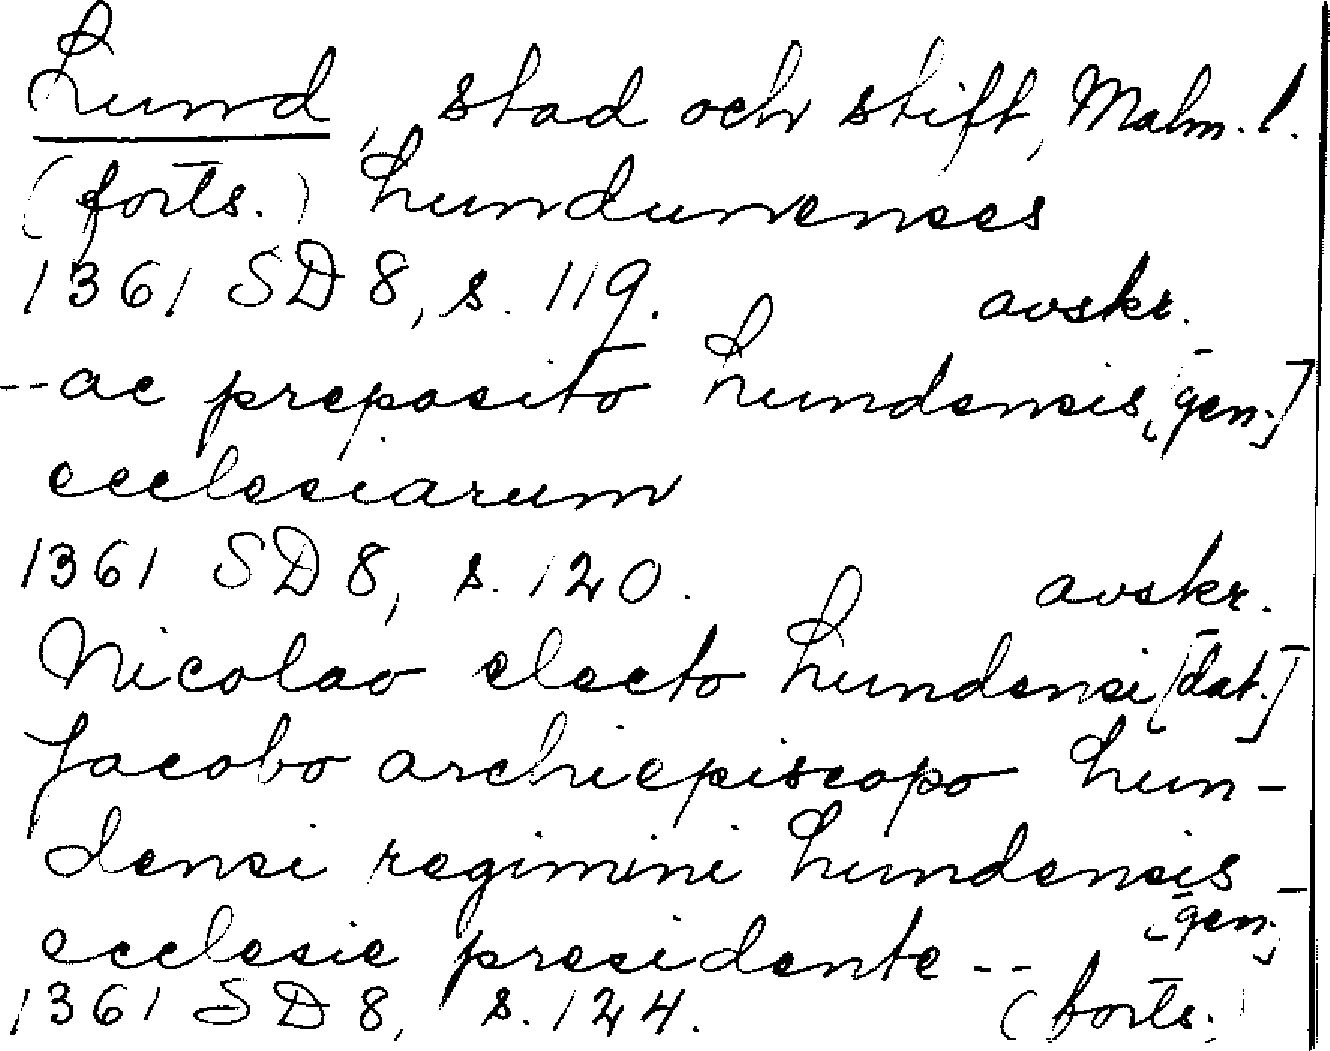 Lund, stad och stift, Malm. l.
(forts.) Lundunenses
1361 SD 8, s. 119. avskr.
-- ac preposito Lundensis [gen.]
ecclesiarum
1361 SD 8, s. 120. avskr.
Nicolao electo Lundensi [dat.]
Jacobo archiepiscopo Lun-
densi regimini Lundensis
[gen.]
ecclesie presidente --
1361 SD 8, s. 124. (forts.)